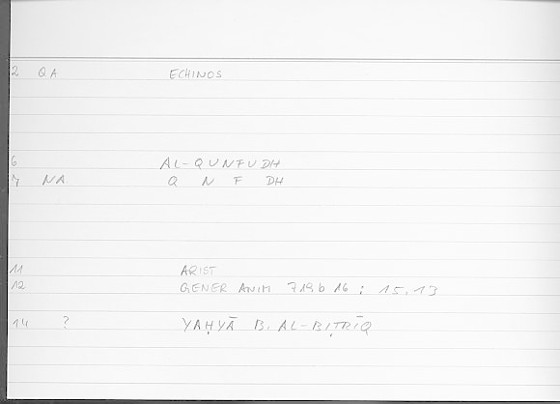 2 QA ECHINOS
6 AL-QUNFUDH
7 NA Q N F DH
11 ARIST
12 GENER ANIM 719b 16 : 15.13
14 ? YAḤYĀ B. AL-BIṬRĪQ